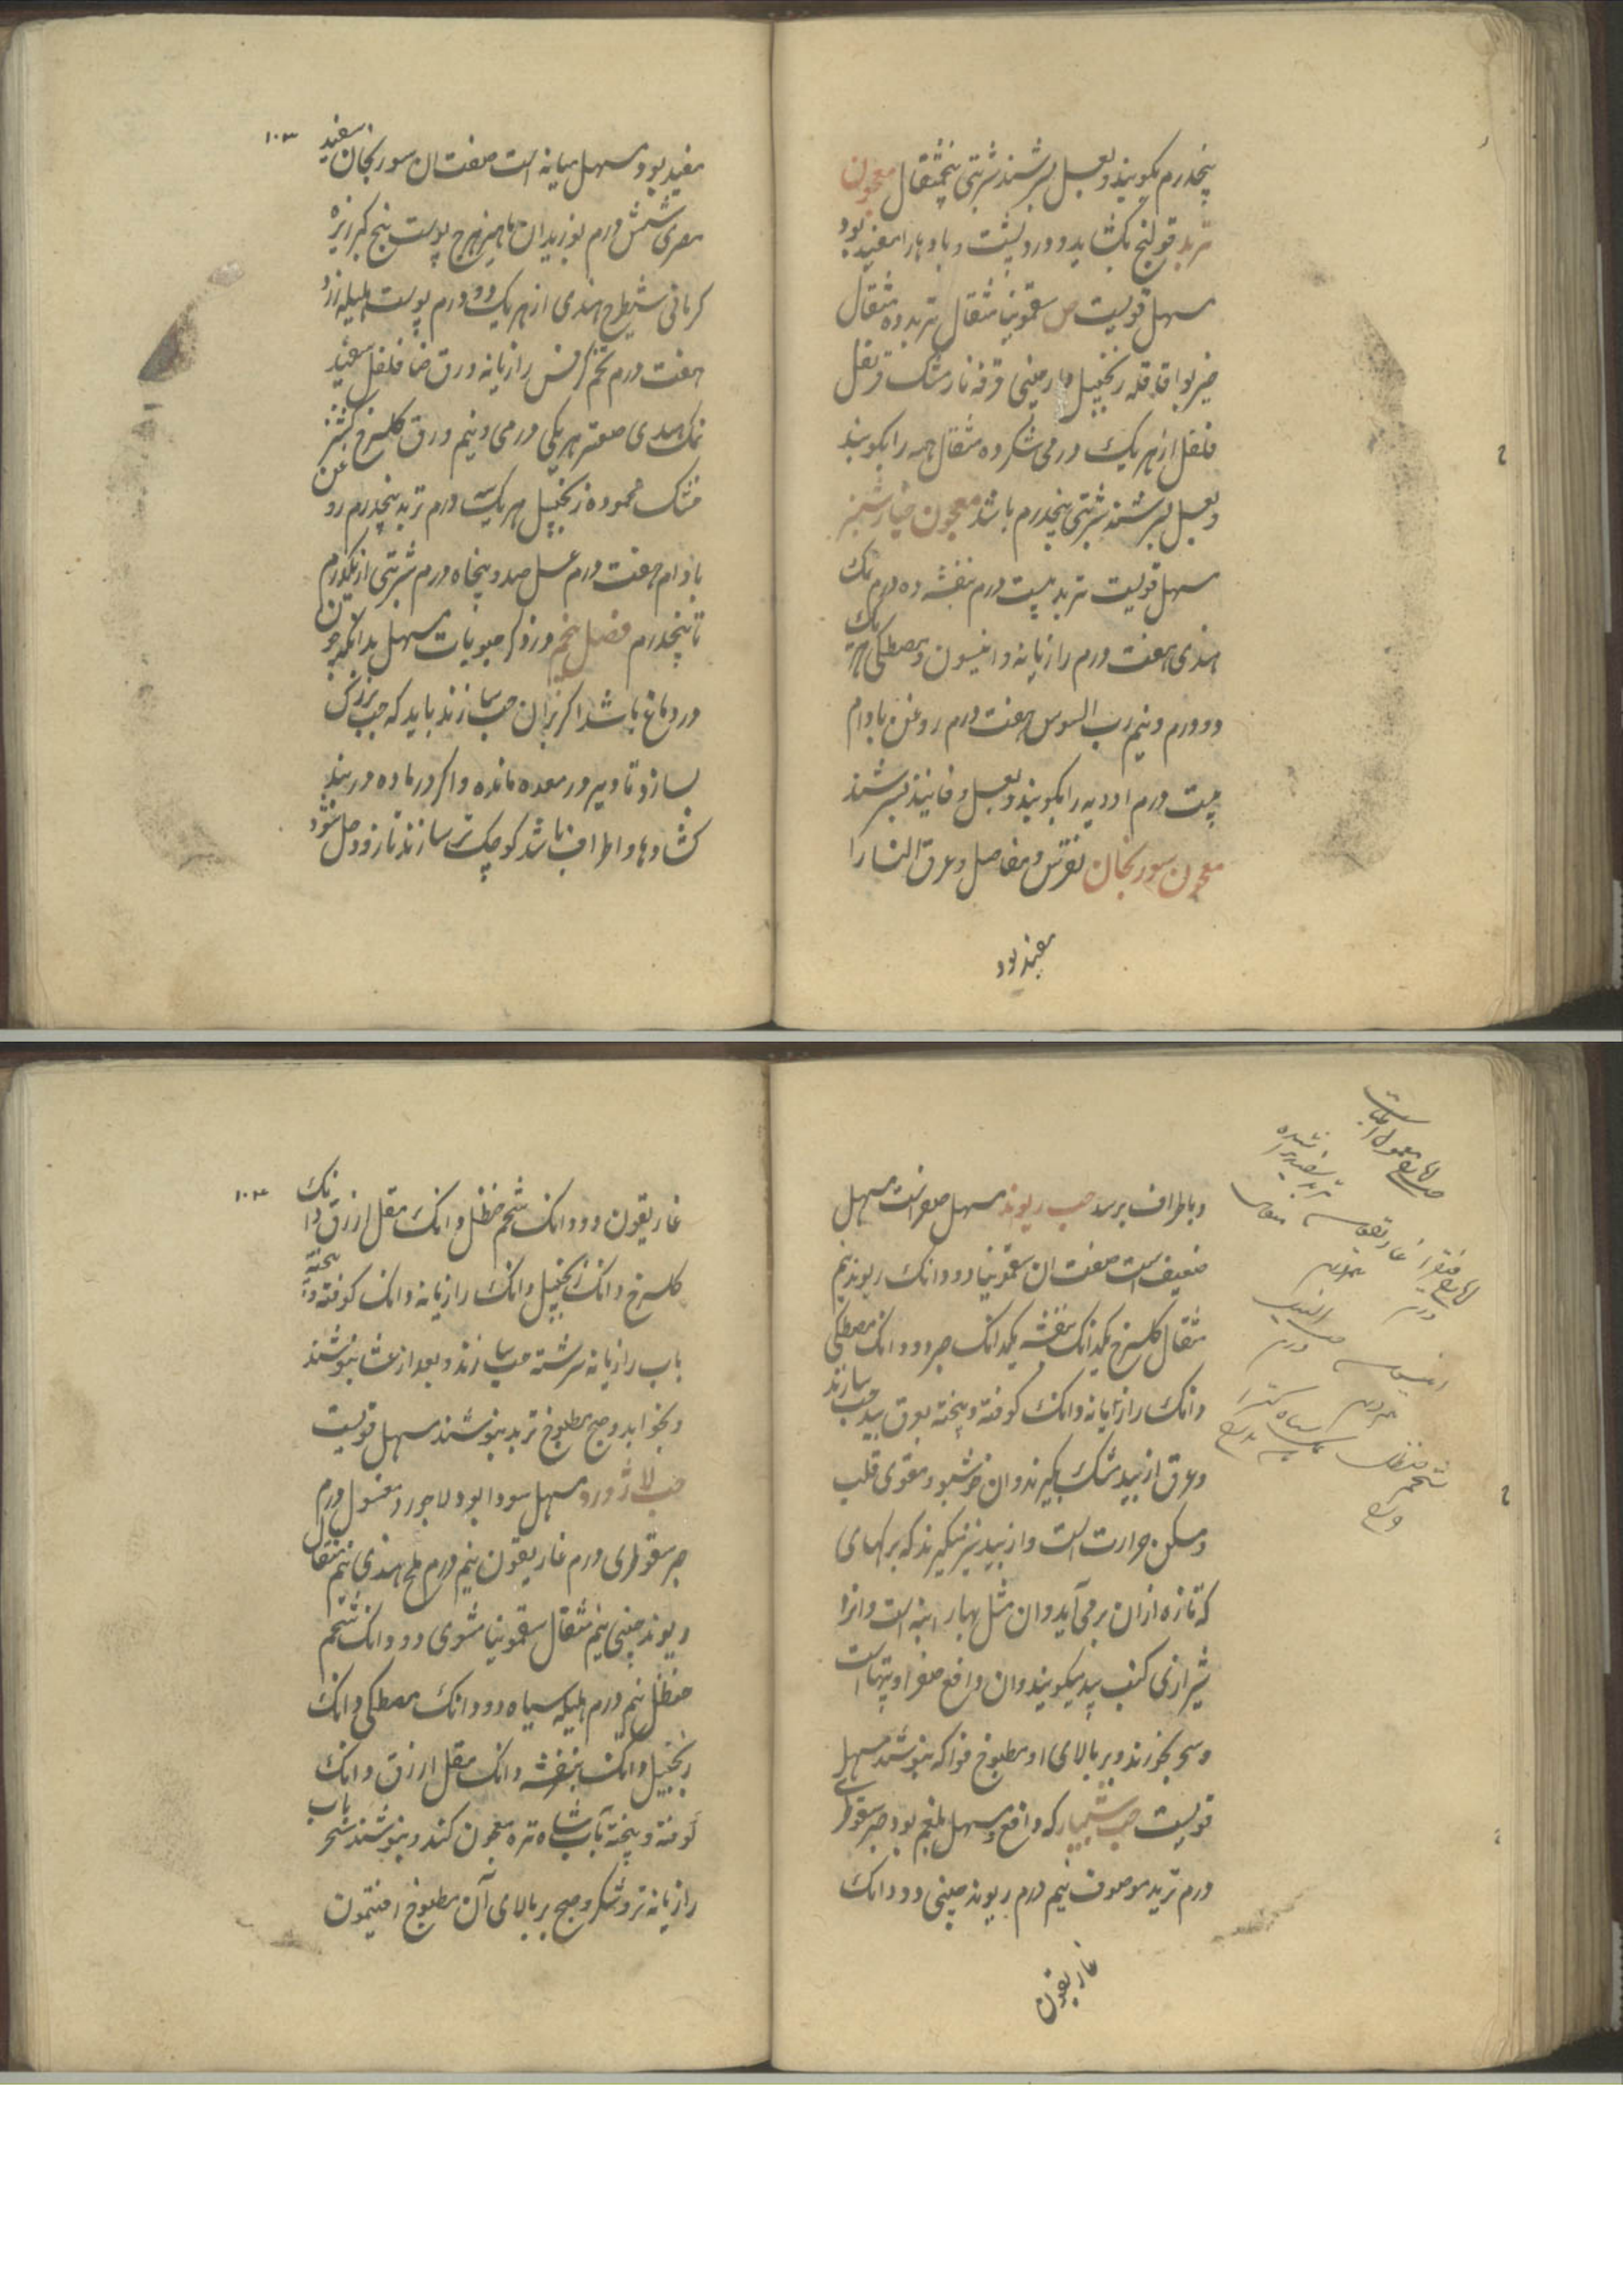 پنجدرم بکوبند و بعسل بسرشند شربتی پنجمثقال معجون
تربد قولنج بکشاید و درد پشت و بادها را مفید بود
مسهل قویست ص سقمونیا مثقال تربد ده مثقال
خیربوا قاقله زنجبیل دارچینی قرفه نارمشک قرنفل
فلفل از هریک درمی شکر ده مثقال همه را بکوبند
و بعسل بسرشند شربتی پنجدرم باشد معجون خیارشنبر
مسهل قویست تربد بیست درم بنفشه ده درم نمک
هندی هفت درم رازیانه و انیسون و مصطکی هریک
دو درم و نیم رب السوس هفت درم روغن بادام
بیست درم ادویه را بکوبند و بعسل و فانیذ بسرشند
معجون سورنجان نقرس و مفاصل و عرق النسا را
مفید بود
۱۰۳
مفید بود و مسهل میانه است صفت ان سورنجان سفید
مصری شش درم بوزیدان ماهیزهرج پوست بیخ کبر زیره
کرمانی شیطرج هندی از هریک دو درم پوست هلیله زرد
هفت درم تخم کرفس رازیانه ورق حنا فلفل سفید
نمک هندی صعتر هریکی درمی و نیم ورق کلسرخ کشنیز
خشک محموده زنجبیل هریک سه درم تربد پنجدرم روغن
بادام هفت درم عسل صد و پنجاه درم شربتی از یکدرم
تا پنجدرم فصل پنجم در ذکر حبوبات مسهل بدانکه چون
در دماغ باشد اکر بران حب سازند باید که حب بزرک
بسازد تا دیر در معده مانده و اکر در ماده در بند
کشادها و اطراف باشد کوچک تر سازند تا زود حل شود
و باطراف برسد حب ریوند مسهل صفراست مسهل
ضعیف است صفت ان سقمونیا دو دانک ریوند نیم
مثقال کلسرخ یکدانک بنفشه یکدانک صبر دو دانک مصطکی
دانک رازیانه دانک کوفته و بیخته بعرق بید حب سازند
و عرق از بید مشک بکیرند و ان خوشبو و مقوی قلب
و مسکن حرارت است و از بید نیز میکیرند که برکهای
که تازه ازان برمی آید و ان مثل بهار انبه است و انرا
شیرازی کنب بید میکویند و ان دافع صفرا و تپهاست
و سحر بخورند و بر بالای او مطبوخ فواکه بنوشند مسهل
قویست حب شبیار که دافع و مسهل بلغم بود صبر سقوطری
درم تربد موصوف نیم درم ریوند چینی دو دانک
غاریقون
۱۰۴
غاریقون دو دانک شحم حنظل دانک مقل ازرق دانک
کلسرخ دانک زنجبیل دانک رازیانه دانک کوفته و بیخته
باب رازیانه سرشته حب سازند و بعد از عشا بنوشند
و بخوابد و صبح مطبوخ تربد بنوشند مسهل قویست
حب لاژورد مسهل سودا بود لاجورد مغسول درم
صبر سقوطری درم غاریقون نیم درم ملح هندی نیم مثقال
ریوند چینی نیم مثقال سقمونیا مشوی دو دانک شحم
حنظل نیم درم هلیله سیاه دو دانک مصطکی دانک
زنجبیل دانک بنفشه دانک مقل ازرق دانک
کوفته و بیخته بآب شاه تره معجون کنند و بنوشند سحر باب
رازیانه تر و شکر و صبح بر بالای آن مطبوخ افتیمون